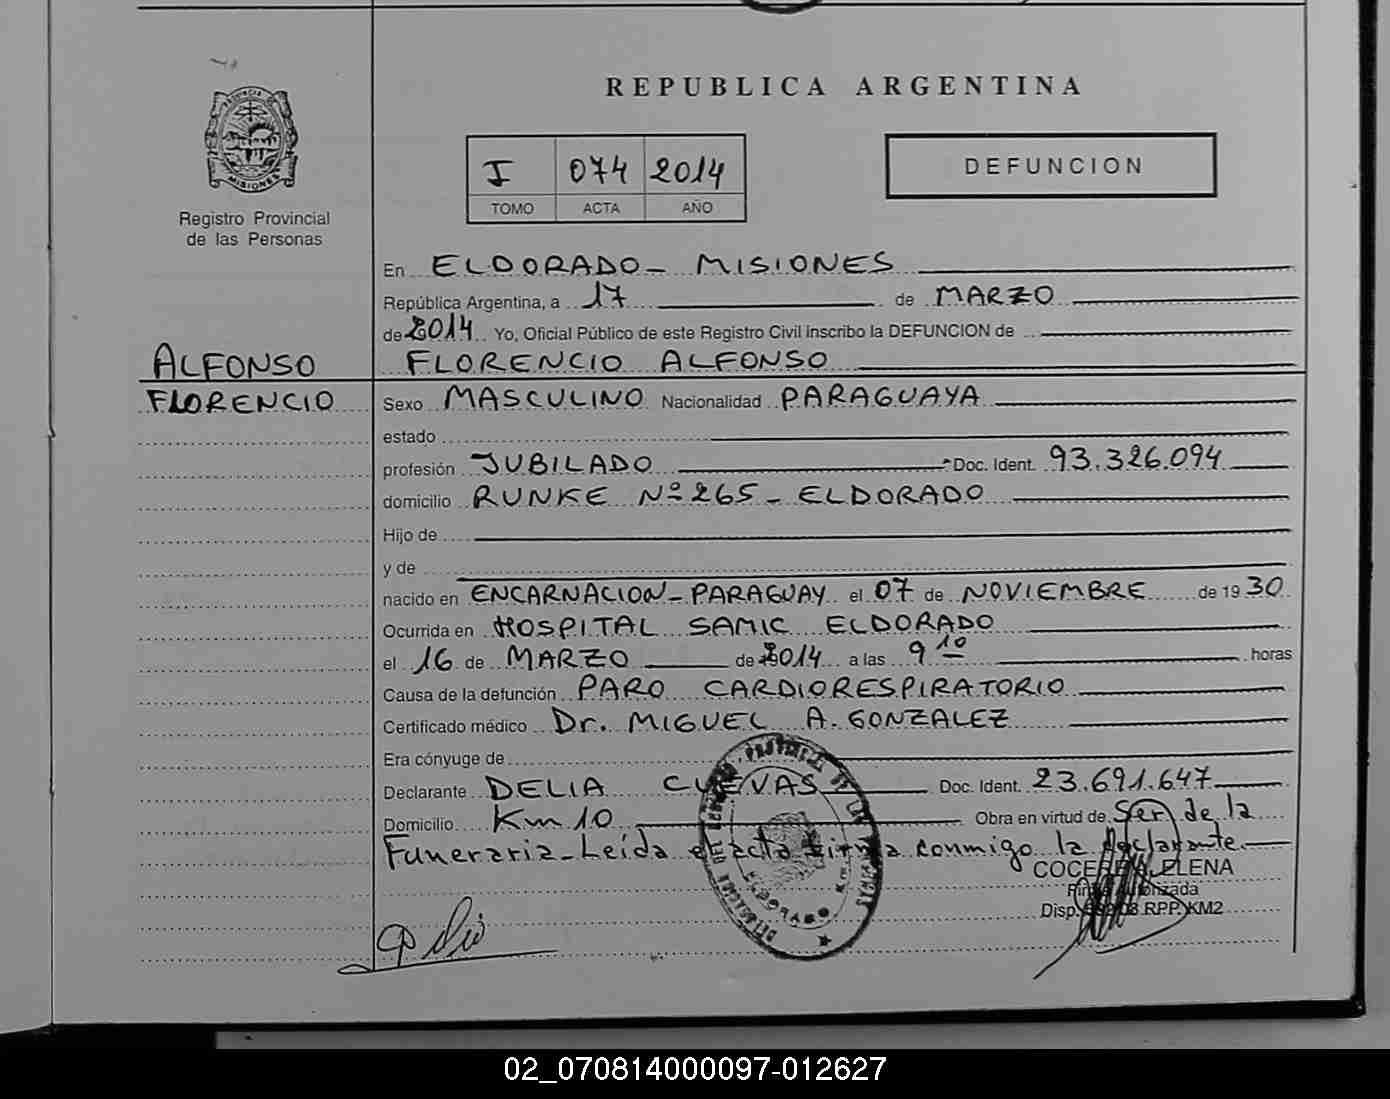 REPUBLICA ARGENTINA
PROVINCIA DE
MISIONES
Registro Provincial
de las Personas
I 074 2014
TOMO ACTA AÑO
DEFUNCION
En ELDORADO - MISIONES
República Argentina, a 17 de MARZO
de 2014 Yo, Oficial Público de este Registro Civil inscribo la DEFUNCION de
ALFONSO FLORENCIO ALFONSO
FLORENCIO Sexo MASCULINO Nacionalidad PARAGUAYA
estado
profesión JUBILADO Doc. Ident. 93.326.094
domicilio RUNKE Nº 265 - ELDORADO
Hijo de
y de
nacido en ENCARNACION - PARAGUAY el 07 de NOVIEMBRE de 1930
Ocurrida en HOSPITAL SAMIC ELDORADO
el 16 de MARZO de 2014 a las 9 10 horas
Causa de la defunción PARO CARDIORESPIRATORIO
Certificado médico Dr. MIGUEL A. GONZALEZ
Era cónyuge de
Declarante DELIA CUEVAS Doc. Ident. 23.691.647
Domicilio Km 10 Obra en virtud de Ser de la
Funeraria - Leída el acta firma conmigo la declarante.
ELENA
Firma Autorizada
Disp. RPP. KM2
ELDORADO
02_070814000097-012627